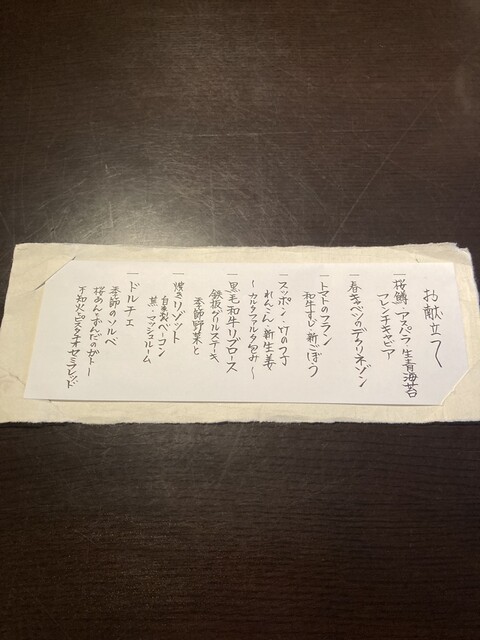 お献立て
一桜鱒・アスパラ・生青海苔
フレンチキャビア
一春キャベツのデクリネゾン
一トマトのフラン
和牛すじ・新ごぼう
一スッポン・竹の子
れんこん・新生姜
〜カルタファルタ包み〜
一黒毛和牛リブロース
鉄板グリルステーキ
季節野菜と
一焼きリゾット
自家製ベーコン
蕗・マッシュルーム
一ドルチェ
季節のソルベ
桜あん・ずんだのガトー
不知火・ピスタチオセミフレッド